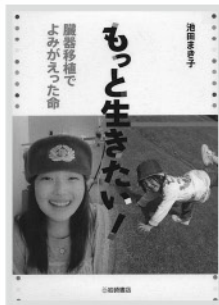 池田まき子
もっと生きたい！
臓器移植で
よみがえった命
岩崎書店